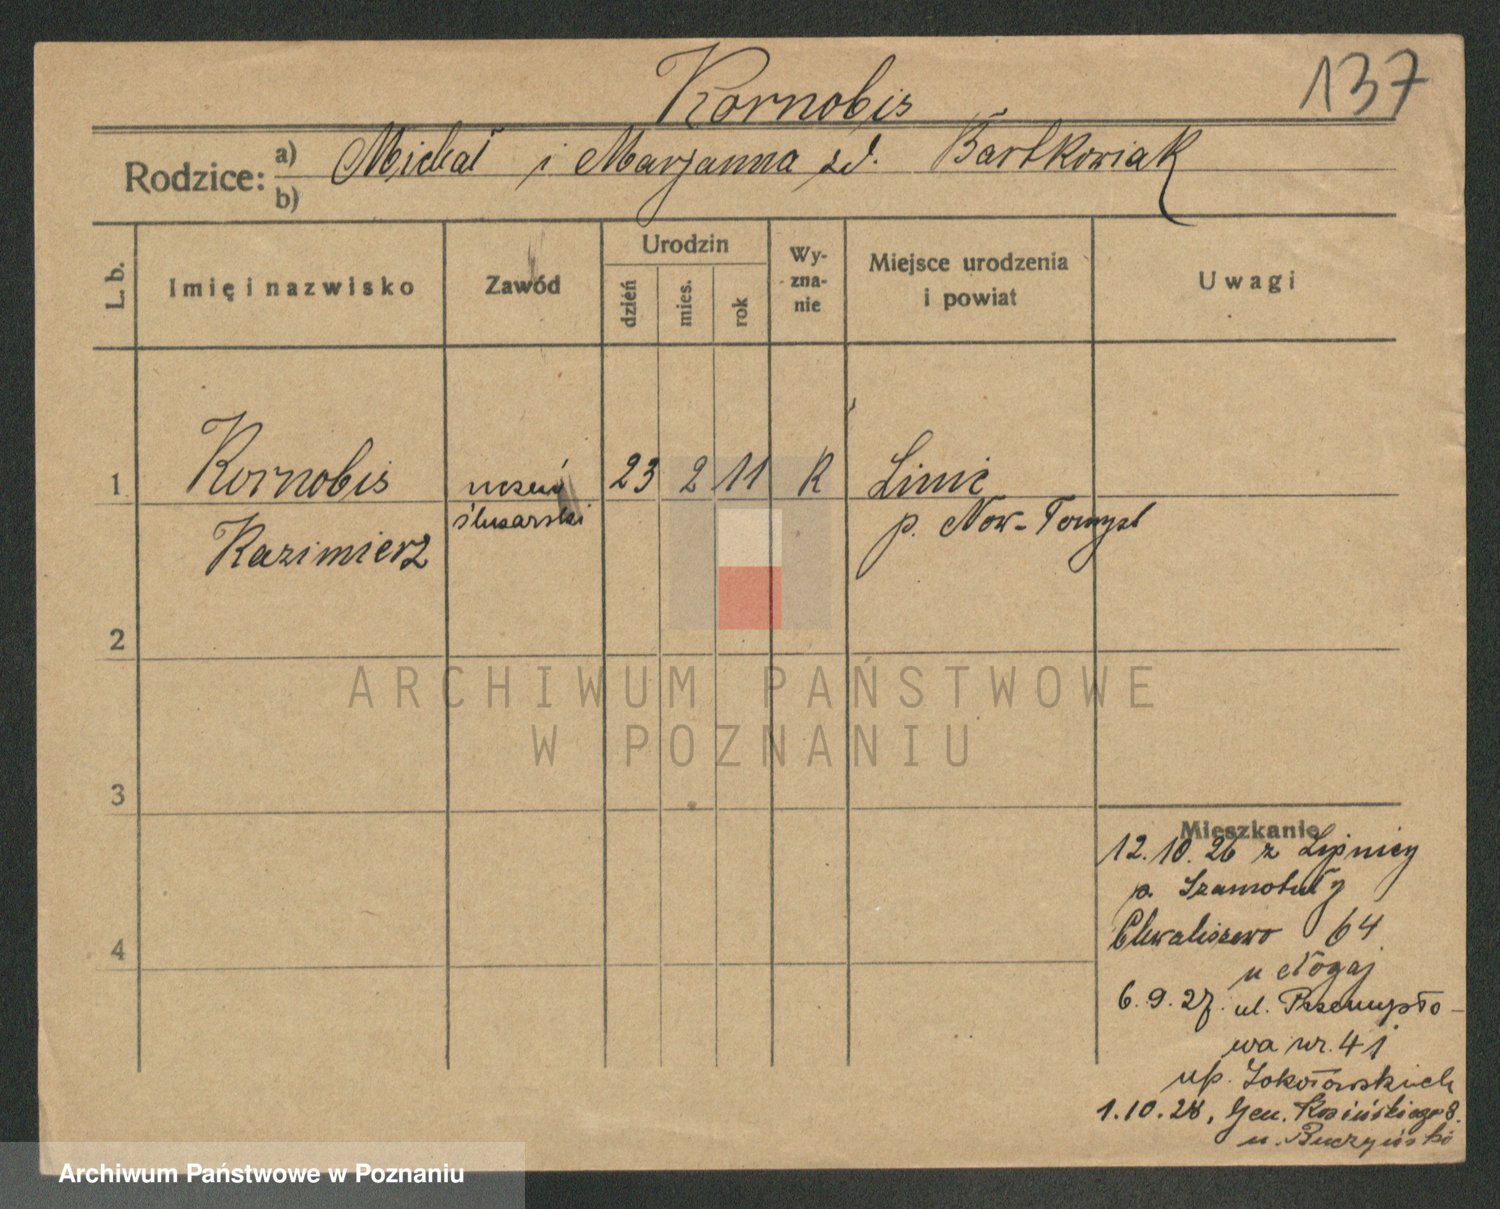 137
Kornobis
Rodzice: a) Michał i Marjanna zd. Bartkowiak
b)
L. b.
Imię i nazwisko
Zawód
Urodzin
dzień
mies.
rok
Wy-
zna-
nie
Miejsce urodzenia
i powiat
Uwagi
1 Kornobis uczeń 23 2 11 R Linie
Kazimierz ślusarski p. Now-Tomyśl
2
3
4
ARCHIWUM PAŃSTWOWE
W POZNANIU
Mieszkanie
12.10.26 z Lipnicy
p. Szamotuły
Chwaliszewo 64
u Nogaj
6.9.27. ul. Przemysło-
wa nr. 41
u p. Sokołowskich
1.10.28, Gen. Kosińskiego 8.
u. Buczyński
Archiwum Państwowe w Poznaniu